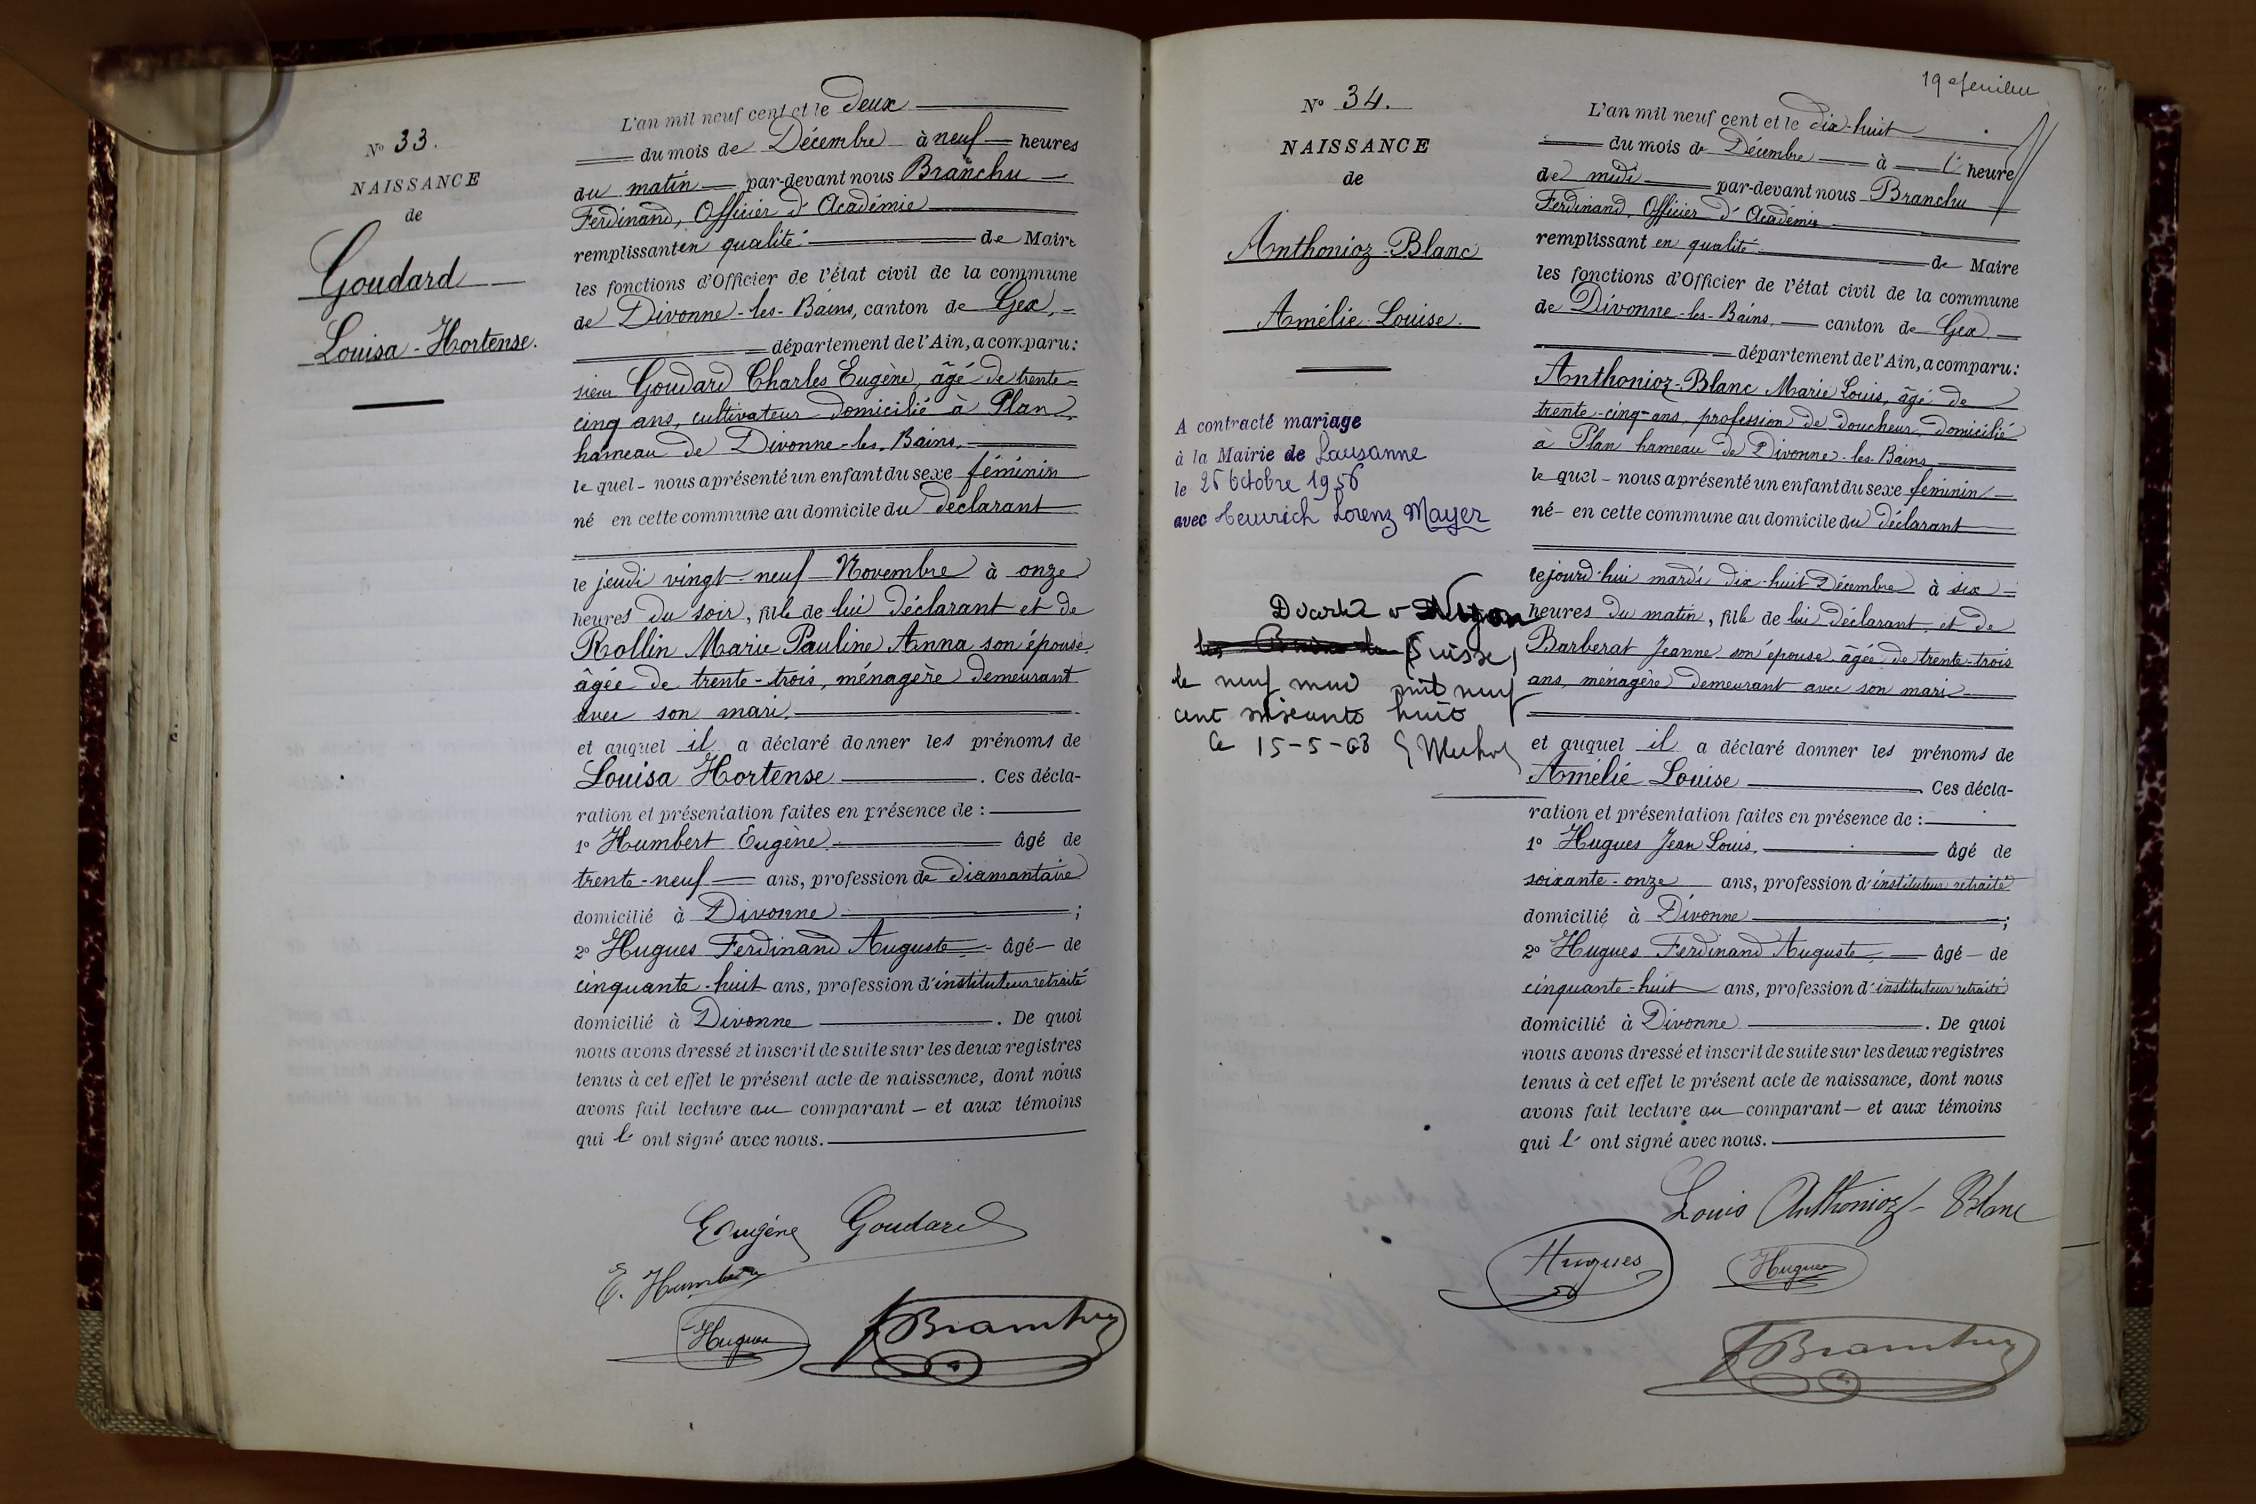 N° 33.
NAISSANCE
de
Goudard
Louisa-Hortense.
L'an mil neuf cent et le deux
du mois de Décembre à neuf heures
du matin par-devant nous Branchu
Ferdinand, Officier d'Académie
remplissant en qualité de Maire
les fonctions d'Officier de l'état civil de la commune
de Divonne-les-Bains, canton de Gex,
département de l'Ain, a comparu:
sieur Goudard Charles Eugène, âgé de trente-
cinq ans, cultivateur domicilié à Plan
hameau de Divonne-les-Bains.
le quel - nous a présenté un enfant du sexe féminin
né en cette commune au domicile du déclarant
le jeudi vingt-neuf Novembre à onze
heures du soir, fille de lui déclarant et de
Rollin Marie Pauline Anna son épouse
âgée de trente-trois, ménagère demeurant
avec son mari.
et auquel il a déclaré donner les prénoms de
Louisa Hortense. Ces décla-
ration et présentation faites en présence de :
1° Humbert Eugène âgé de
trente-neuf ans, profession de diamantaire
domicilié à Divonne ;
2° Hugues Ferdinand Auguste âgé de
cinquante-huit ans, profession d'instituteur retraité
domicilié à Divonne. De quoi
nous avons dressé et inscrit de suite sur les deux registres
tenus à cet effet le présent acte de naissance, dont nous
avons fait lecture au comparant - et aux témoins
qui l' ont signé avec nous.
Eugène Goudard
E. Humbert
Hugues
Branchu
N° 34.
NAISSANCE
de
Anthonioz-Blanc
Amélie-Louise.
A contracté mariage
à la Mairie de Lausanne
le 26 Octobre 1956
avec Heinrich Lorenz Mayer
Nyon
(Suisse)
le neuf mai mil neuf
cent soixante huit
Le 15-5-68
19
L'an mil neuf cent et le dix-huit
du mois de Décembre à heure
de midi par-devant nous Branchu
Ferdinand, Officier d'Académie
remplissant en qualité de Maire
les fonctions d'Officier de l'état civil de la commune
de Divonne-les-Bains, canton de Gex
département de l'Ain, a comparu:
Anthonioz-Blanc Marie Louis, âgé de
trente-cinq-ans, profession de doucheur, domicilié
à Plan hameau de Divonne-les-Bains
le quel - nous a présenté un enfant du sexe féminin
né - en cette commune au domicile du déclarant
cejourd'hui mardi dix-huit Décembre à six
heures du matin, fille de lui déclarant et de
Barberat Jeanne son épouse âgée de trente-trois
ans, ménagère demeurant avec son mari
et auquel il a déclaré donner les prénoms de
Amélie Louise. Ces décla-
ration et présentation faites en présence de :
1° Hugues Jean Louis. âgé de
soixante-onze ans, profession d'instituteur retraité
domicilié à Divonne ;
2° Hugues Ferdinand Auguste âgé - de
cinquante-huit ans, profession d'instituteur retraité
domicilié à Divonne. De quoi
nous avons dressé et inscrit de suite sur les deux registres
tenus à cet effet le présent acte de naissance, dont nous
avons fait lecture au comparant - et aux témoins
qui l' ont signé avec nous.
Louis Anthonioz-Blanc
Hugues
Hugues
Branchu